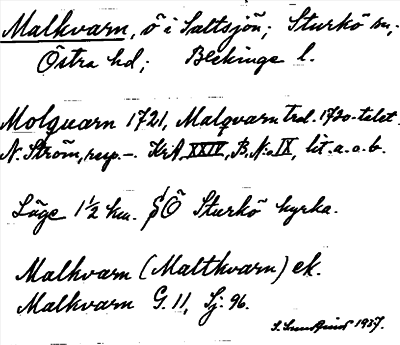 Malkvarn, ö i Saltsjön; Sturkö sn,
Östra hd; Blekinge l.
Molquarn 1721, Malqvarn trol. 1720-talet.
N. Ström, resp. -. KrA XXIV, B, N:o IX, lit. a. o. b.
Läge 1 1/2 km. SÖ Sturkö kyrka.
Malkvarn (Maltkvarn) ek.
Malkvarn G. 11, Sj. 96.
1937.